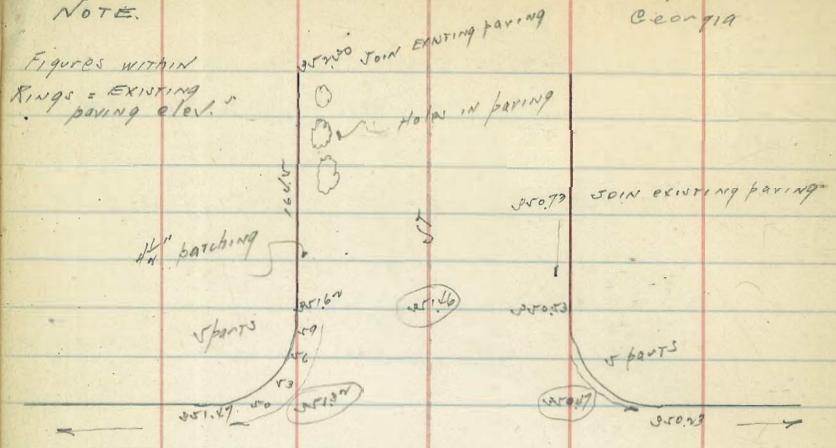 NOTE.
Georgia
Figures within
Rings = Existing
paving elev.s
352.30 JOIN EXISTING paving
Holes in paving
350.73
JOIN existing paving
1 1/4" patching
351.62
351.46
350.53
5 parts
59
56
53
50
5 parts
351.47
350.47
350.23